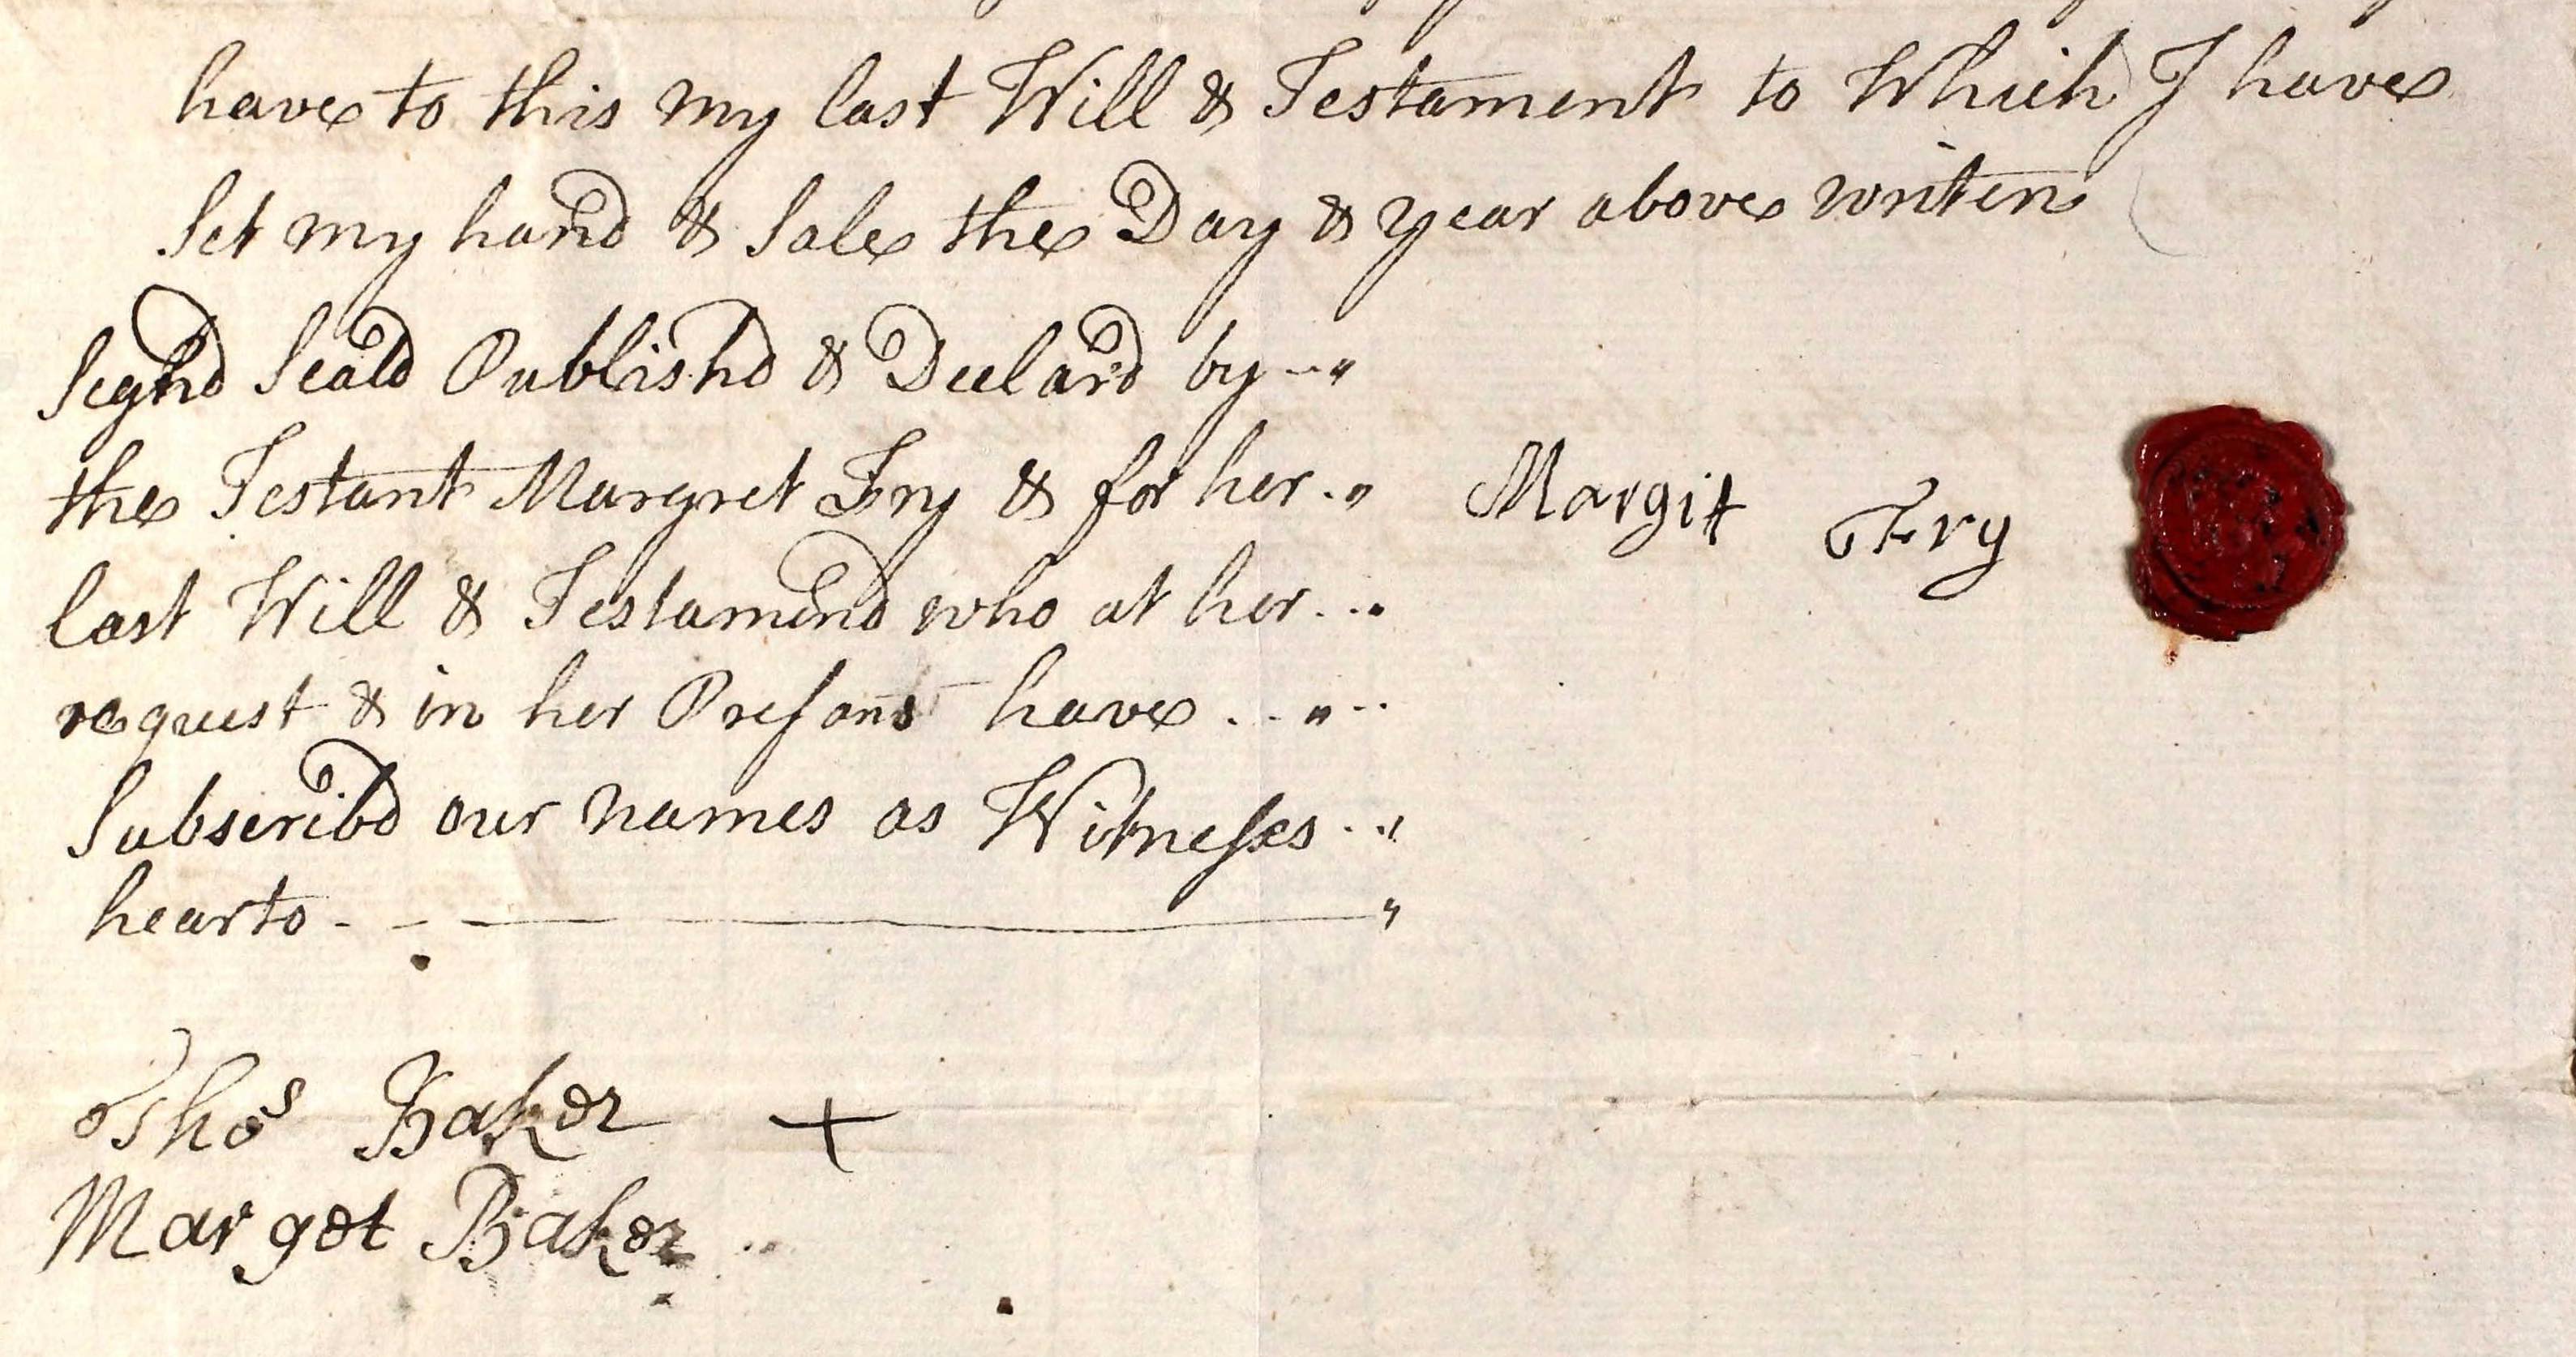 have to this my last Will & Testament to Which I have
Set my hand & Sale the Day & year above writen
Seghd Seald Publishd & Declard by
the Testant Margret Fry & for her
last Will & Testamend who at her
request & in her Presans have
Subscribd our names as Witnesses
hearto
Margit Fry
Thos Baker +
Marget Baker